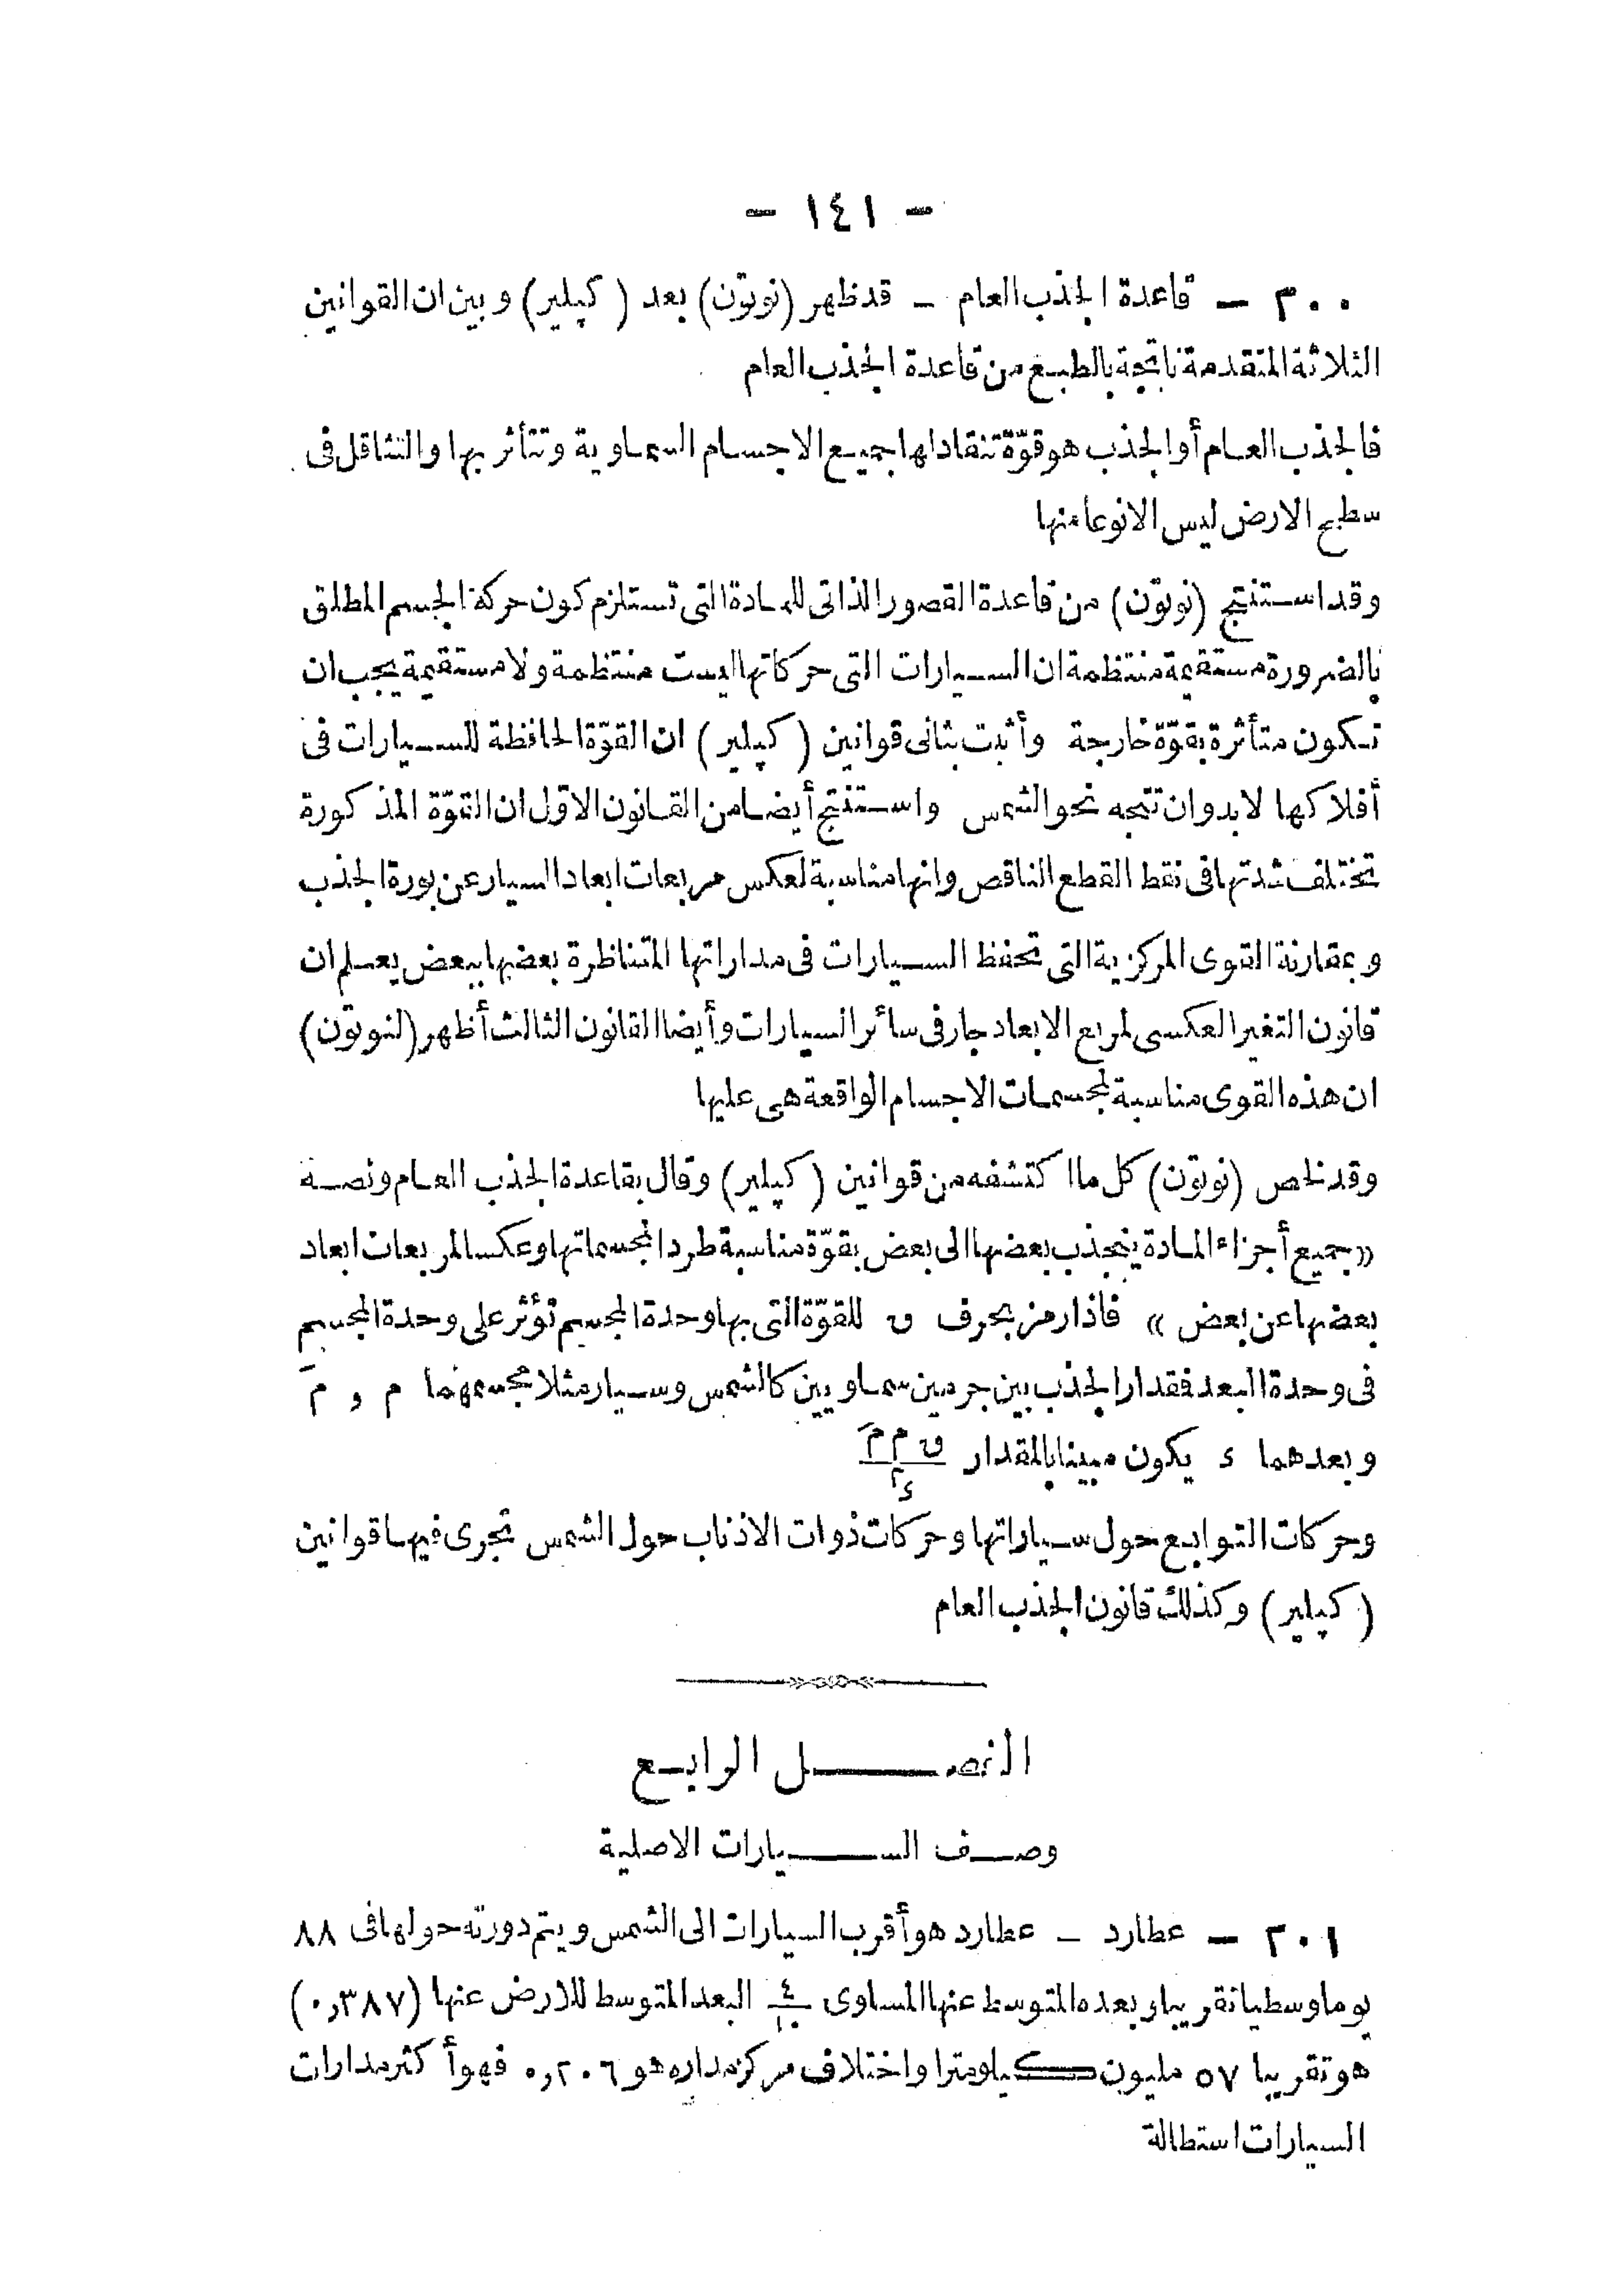 - ١٤١ -
٢٠٠ - قاعدة الجذب العام - قد ظهر (نوتون) بعد (كپلير) وبين ان القوانين
الثلاثة المتقدمة ناتجة بالطبع من قاعدة الجذب العام
فالجذب العام أو الجذب هو قوّة تنقاد لها جميع الاجسام السماوية وتتأثر بها والتثاقل فى
سطح الارض ليس الا نوعا منها
وقد استنتج (نوتون) من قاعدة القصور الذاتى للمادة التى تستلزم كون حركة الجسم المطلق
بالضرورة مستقيمة منتظمة ان السيارات التى حركاتها ليست منتظمة ولا مستقيمة يجب ان
تكون متأثرة بقوّة خارجة وأثبت بثانى قوانين (كپلير) ان القوّة الحافظة للسيارات فى
أفلاكها لا بد وان تتجه نحو الشمس واستنتج أيضا من القانون الاول ان القوّة المذكورة
تختلف شدتها فى نقط القطع الناقص وانها مناسبة لعكس مربعات ابعاد السيار عن بورة الجذب
وبمقارنة القوى المركزية التى تحفظ السيارات فى مداراتها المتناظرة بعضها ببعض يعلم ان
قانون التغير العكسى لمربع الابعاد جار فى سائر السيارات وأيضا القانون الثالث أظهر (لنوتون)
ان هذه القوى مناسبة لمجسمات الاجسام الواقعة هى عليها
وقد لخص (نوتون) كل ما اكتشفه من قوانين (كپلير) وقال بقاعدة الجذب العام ونصه
«جميع أجزاء المادة ينجذب بعضها الى بعض بقوّة مناسبة طردا لمجسماتها وعكسا لمربعات ابعاد
بعضها عن بعض» فاذا رمز بحرف ق للقوّة التى بها وحدة المجسم تؤثر على وحدة المجسم
فى وحدة البعد فمقدار الجذب بين جرمين سماويين كالشمس وسيار مثلا مجسمهما م و مَ
وبعدهما ء يكون مبينا بالمقدار ق م مَ / ء٢
وحركات التوابع حول سياراتها وحركات ذوات الاذناب حول الشمس تجرى فيها قوانين
(كپلير) وكذلك قانون الجذب العام
الفصل الرابع
وصف السيارات الاصلية
٢٠١ - عطارد - عطارد هو أقرب السيارات الى الشمس ويتم دورته حولها فى ٨٨
يوما وسطيا تقريبا وبعده المتوسط عنها المساوى ٤/١٠ البعد المتوسط للارض عنها (٠,٣٨٧)
هو تقريبا ٥٧ مليون كيلومترا واختلاف مركز مداره هو ٠,٢٠٦ فهو أكثر مدارات
السيارات استطالة